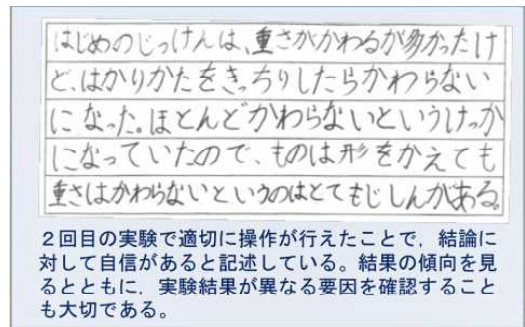 はじめのじっけんは、重さがかわるが多かったけ
ど、はかりかたをきっちりしたらかわらない
になった。ほとんどかわらないというけっか
になっていたので、ものは形をかえても
重さはかわらないというのはとてもじしんがある。
2回目の実験で適切に操作が行えたことで，結論に
対して自信があると記述している。結果の傾向を見
るとともに，実験結果が異なる要因を確認すること
も大切である。